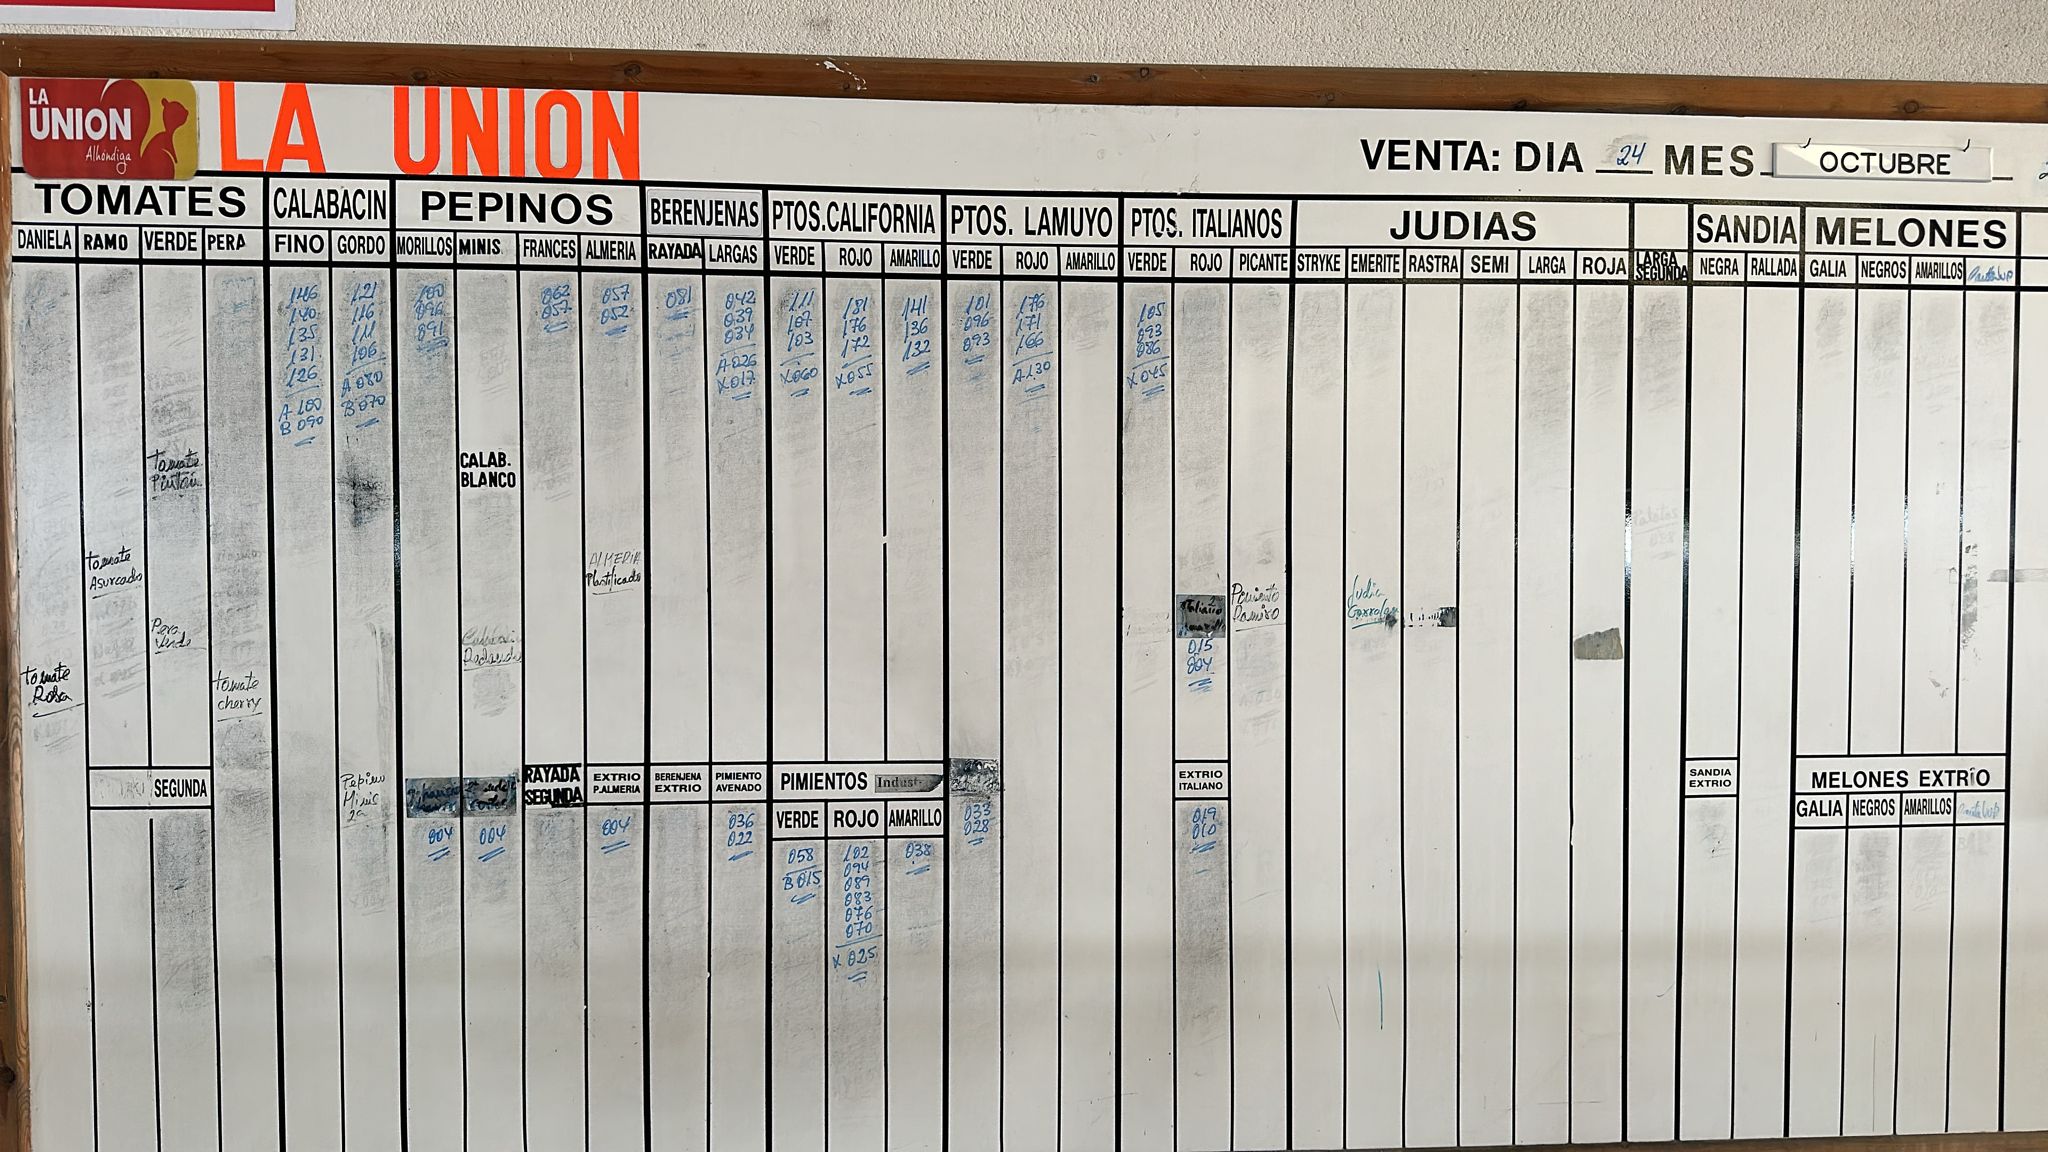 LA
UNION
Alhóndiga
LA UNION
VENTA: DIA 24 MES OCTUBRE
TOMATES CALABACIN PEPINOS BERENJENAS PTOS.CALIFORNIA PTOS. LAMUYO PTOS. ITALIANOS JUDIAS SANDIA MELONES
DANIELA RAMO VERDE PERA FINO GORDO MORILLOS MINIS FRANCES ALMERIA RAYADA LARGAS VERDE ROJO AMARILLO VERDE ROJO AMARILLO VERDE ROJO PICANTE STRYKE EMERITE RASTRA SEMI LARGA ROJA LARGA SEGUNDA NEGRA RALLADA GALIA NEGROS AMARILLOS
146 121 100 062 057 081 042 111 181 141 101 176 105
140 116 096 057 052 039 107 176 136 096 171 093
135 111 091 034 103 172 132 093 166 086
131 106 A 026 X 060 X 055 A 130 X 045
126 A 080 X 017
A 100 B 070
B 090
CALAB.
BLANCO
tomate
Asurcado
ALMERIA
Plastificado
Pera
Verde
tomate
Rosa
tomate
cherry
Pimiento
Ramiro
Judia
Italiano
015
004
SEGUNDA
Pepino
Minis
2ª
RAYADA
SEGUNDA
EXTRIO
P.ALMERIA
BERENJENA
EXTRIO
PIMIENTO
AVENADO
PIMIENTOS Indust
EXTRIO
ITALIANO
SANDIA
EXTRIO
MELONES EXTRIO
VERDE ROJO AMARILLO
GALIA NEGROS AMARILLOS
004 004 004 036 033 019
022 028 010
058 102 038
B 015 094
089
083
076
070
X 025